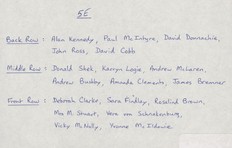 5E
Back Row : Alan Kennedy, Paul McIntyre, David Donnachie,
John Ross, David Cobb
Middle Row : Donald Shek, Karryn Logie, Andrew McLaren,
Andrew Busby, Amanda Clements, James Bremner
Front Row : Deborah Clarke, Sara Findlay, Rosalind Brown,
Mrs M. Stuart, Vera von Schnakenburg,
Vicky McNally, Yvonne